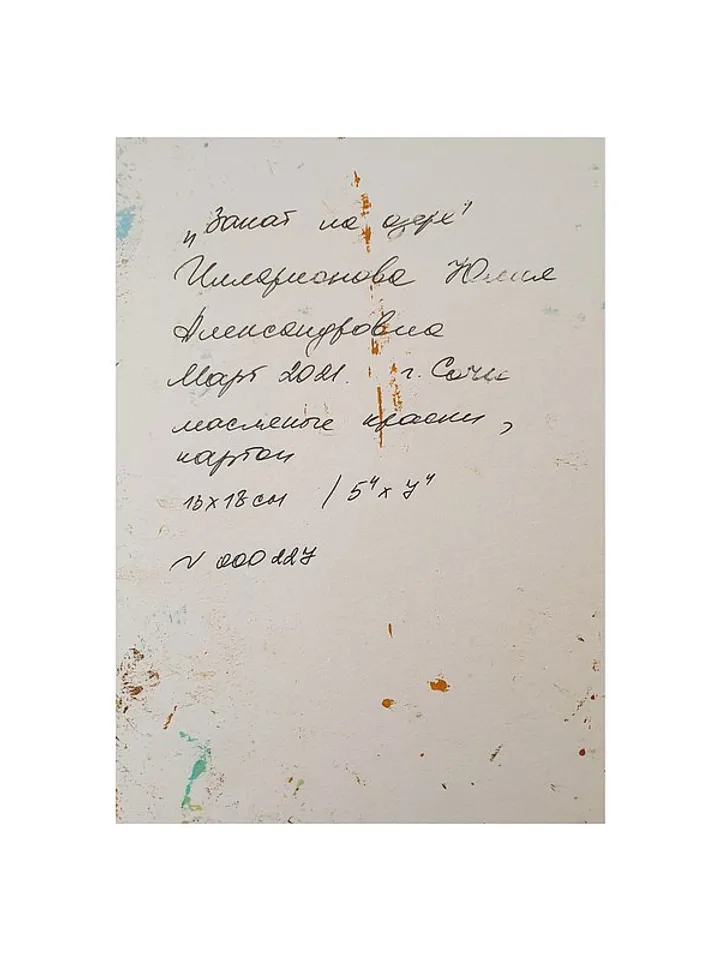 „Закат на озере"
Илларионова Юлия
Александровна
Март 2021. г. Сочи
масляные краски,
картон
13х18 см / 5" х 7"
N 000227